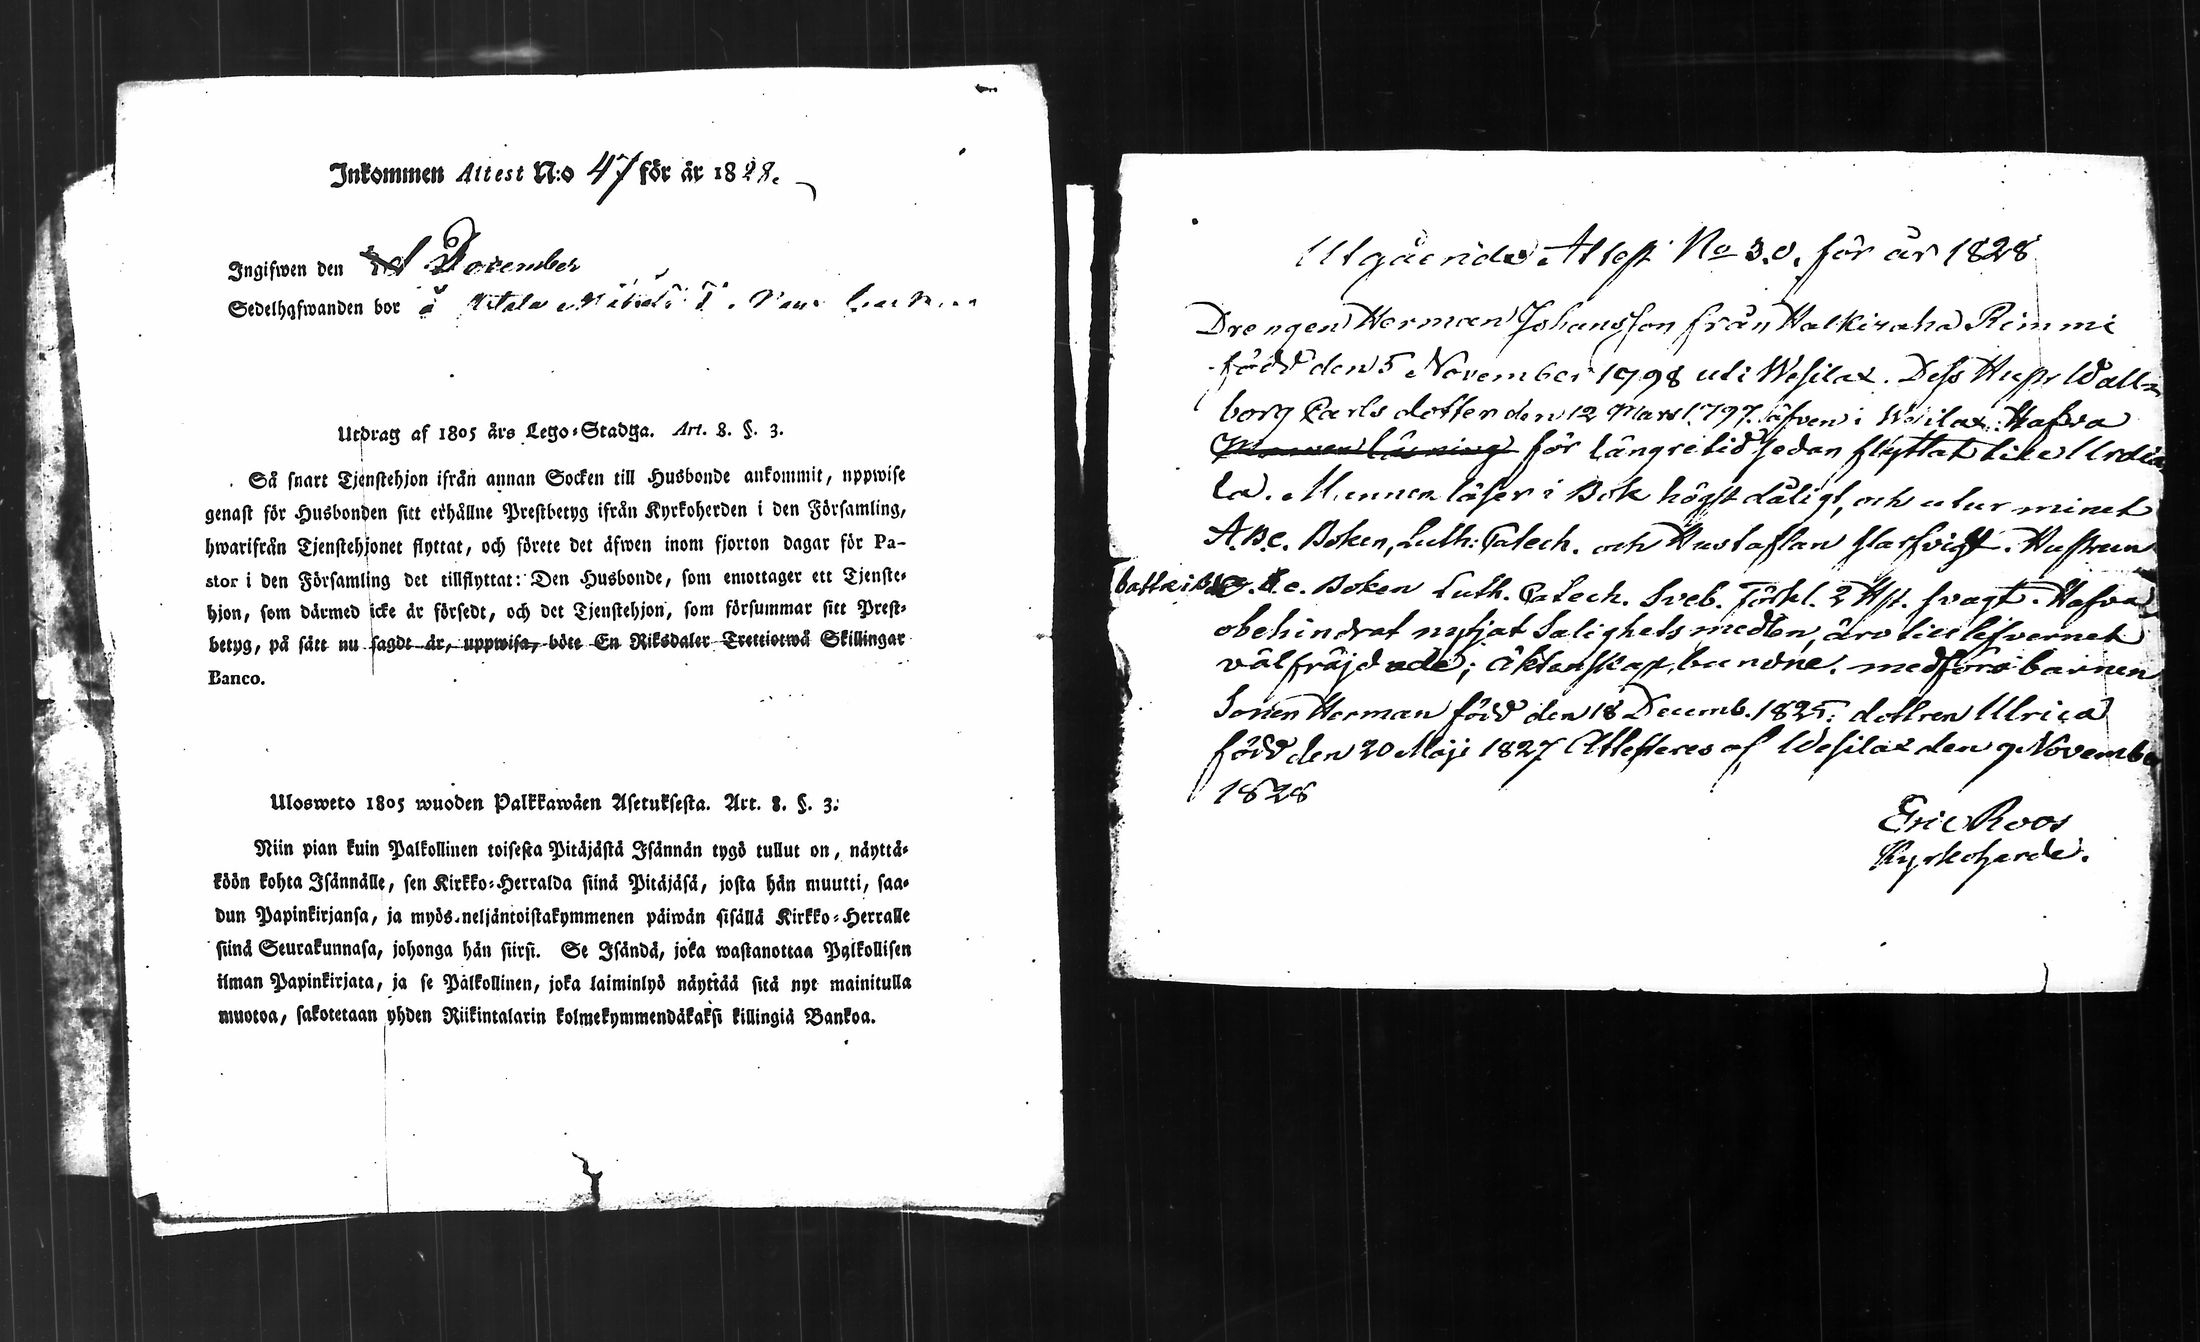 Inkommen Attest N:o 47 för år 1828.
Ingifwen den December
Sedelhafwanden bor å
Utdrag af 1805 års Lego-Stadga. Art. 8. §. 3.
Så snart Tjenstehjon ifrån annan Socken till Husbonde ankommit, uppwise
genast för Husbonden sitt erhållne Prestbetyg ifrån Kyrkoherden i den Församling,
hwarifrån Tjenstehjonet flyttat, och förete det äfwen inom fjorton dagar för Pa-
stor i den Församling det tillflyttat: Den Husbonde, som emottager ett Tjenste-
hjon, som därmed icke är försedt, och det Tjenstehjon, som försummar sitt Prest-
betyg, på sätt nu sagdt är, uppwisa, böte En Riksdaler Trettiotwå Skillingar
Banco.
Ulosweto 1805 wuoden Palkkawäen Asetuksesta. Art. 8. §. 3.
Niin pian kuin Palkollinen toisesta Pitäjästä Isännän tygö tullut on, näyttä-
köön kohta Isännälle, sen Kirkko-Herralda siinä Pitäjäsä, josta hän muutti, saa-
dun Papinkirjansa, ja myös neljäntoistakymmenen päiwän sisällä Kirkko-Herralle
siinä Seurakunnasa, johonga hän siirsi. Se Isändä, joka wastanottaa Palkollisen
ilman Papinkirjata, ja se Palkollinen, joka laiminlyö näyttää sitä nyt mainitulla
muotoa, sakotetaan yhden Riikintalarin kolmekymmendäkaksi killingiä Bankoa.
Utgående Attest No 30. för år 1828
Drengen Herman Johansson från Halkiwaha Rimmi
född den 5 November 1798 uti Wesilax. Dess Hustr Wall-
borg Carls dotter den 12 Mars 1797. äfven i Wesilax. Hafva
för längre tid sedan flyttat till Urdia
la. Mannen läser i Bok högst dåligt, och utur minnet
A.B.C. Boken, Luth: Catech. och Hustaflan slarfvigt. Hustrun
A.B.C. Boken Luth. Catech. Sveb. Förkl. 2 Hst. svagt. Hafva
obehindrat nytjat Salighets medlen, äro till lefvernet
välfräjdade; äktenskap bundne. medföra barnen
Sonen Herman född den 18 Decemb. 1825. dottren Ulrica
född den 20 Maji 1827 Attesteres af Wesilax den 9 November
1828
Eric Roos
Kyrkoherde.